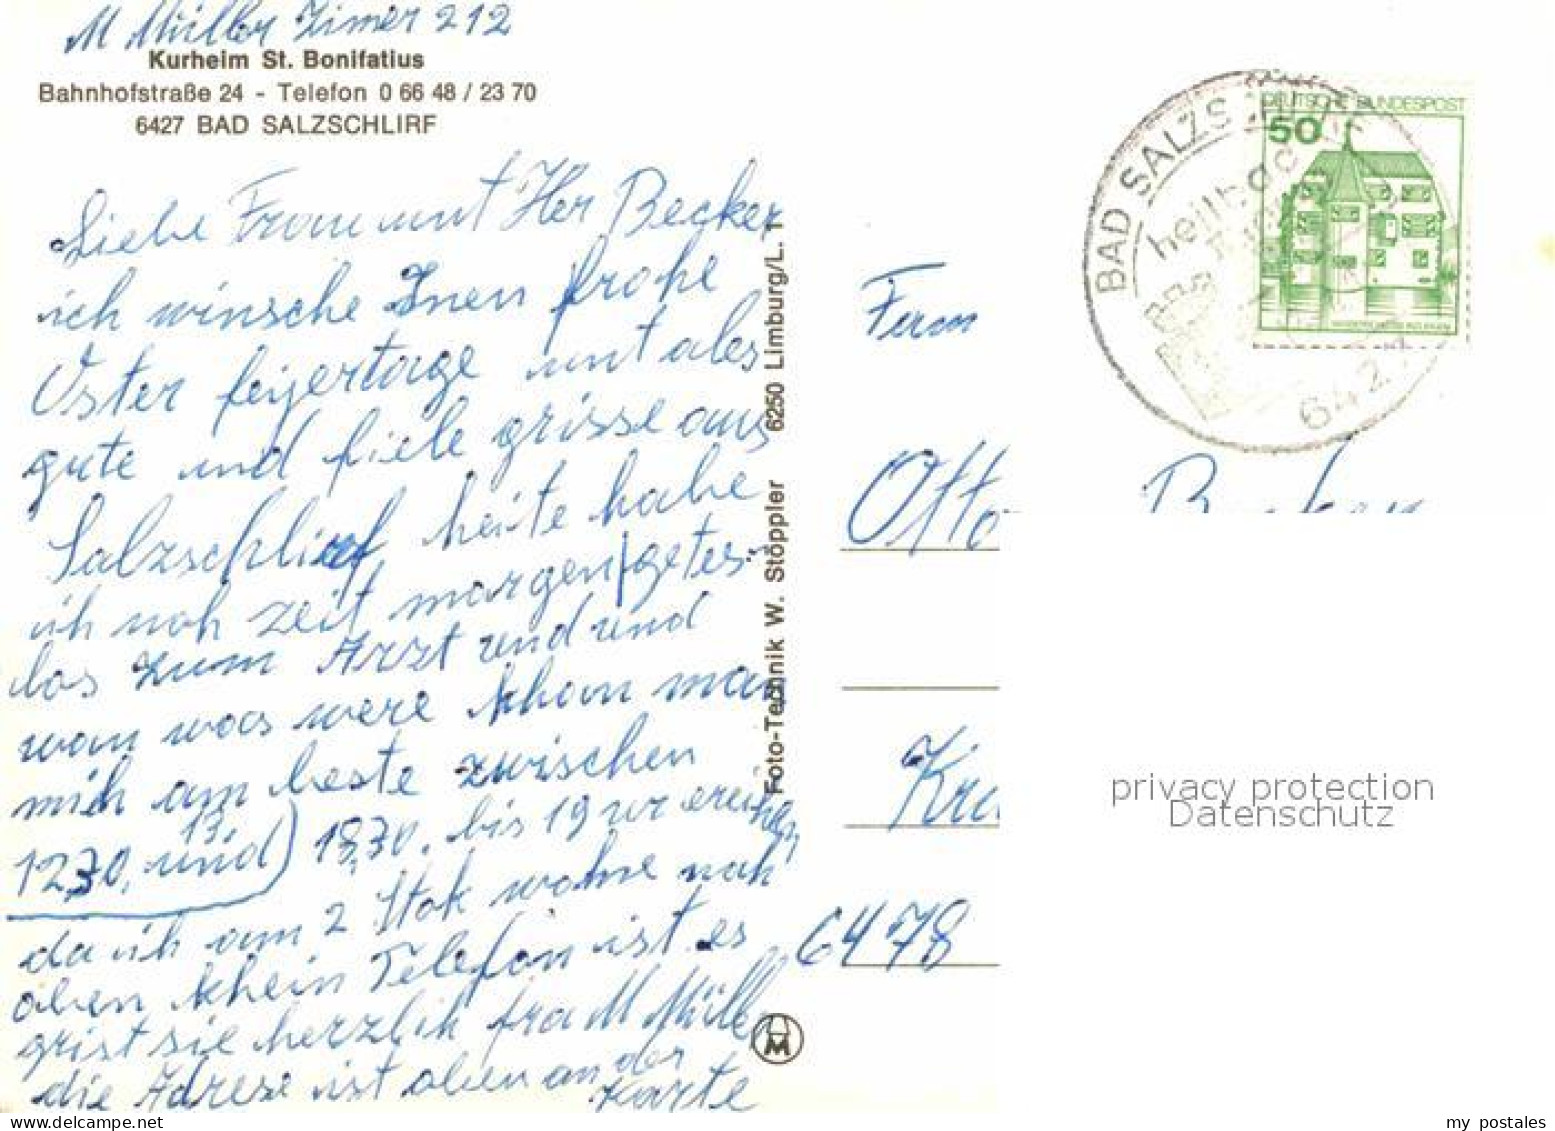 M Müller Zimer 212
Kurheim St. Bonifatius
Bahnhofstraße 24 - Telefon 0 66 48 / 23 70
6427 BAD SALZSCHLIRF
Liebe Frau unt Her Becker
ich winsche Inen frohe
Oster feijertage unt ales
gute und fiele grisse aus
Salzschlirf heite habe
ich noh zeit morgen getes
los zum Arzt und und
wan was were khon man
mich am beste zwischen
1230, und 13, 18,30. bis 19 ur ereichen
da ich am 2 Stok wohne nah
oben khein Telefon ist es
grist sie herzlih fra M Müller
die Adrese ist oben an der
Karte
Foto-Technik W. Stöppler 6250 Limburg/L. 1
M
DEUTSCHE BUNDESPOST
50
BAD SALZSCHLIRF
heilbad
6427
Otto
6478
privacy protection
Datenschutz
my postales